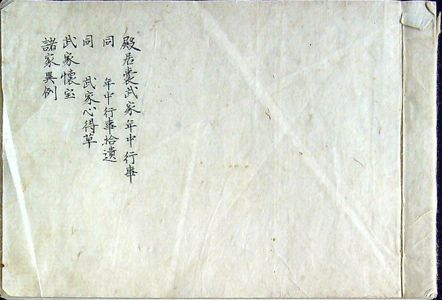 殿居嚢武家年中行事
同 年中行事拾遺
同 武家心得草
武家懐宝
諸家異例